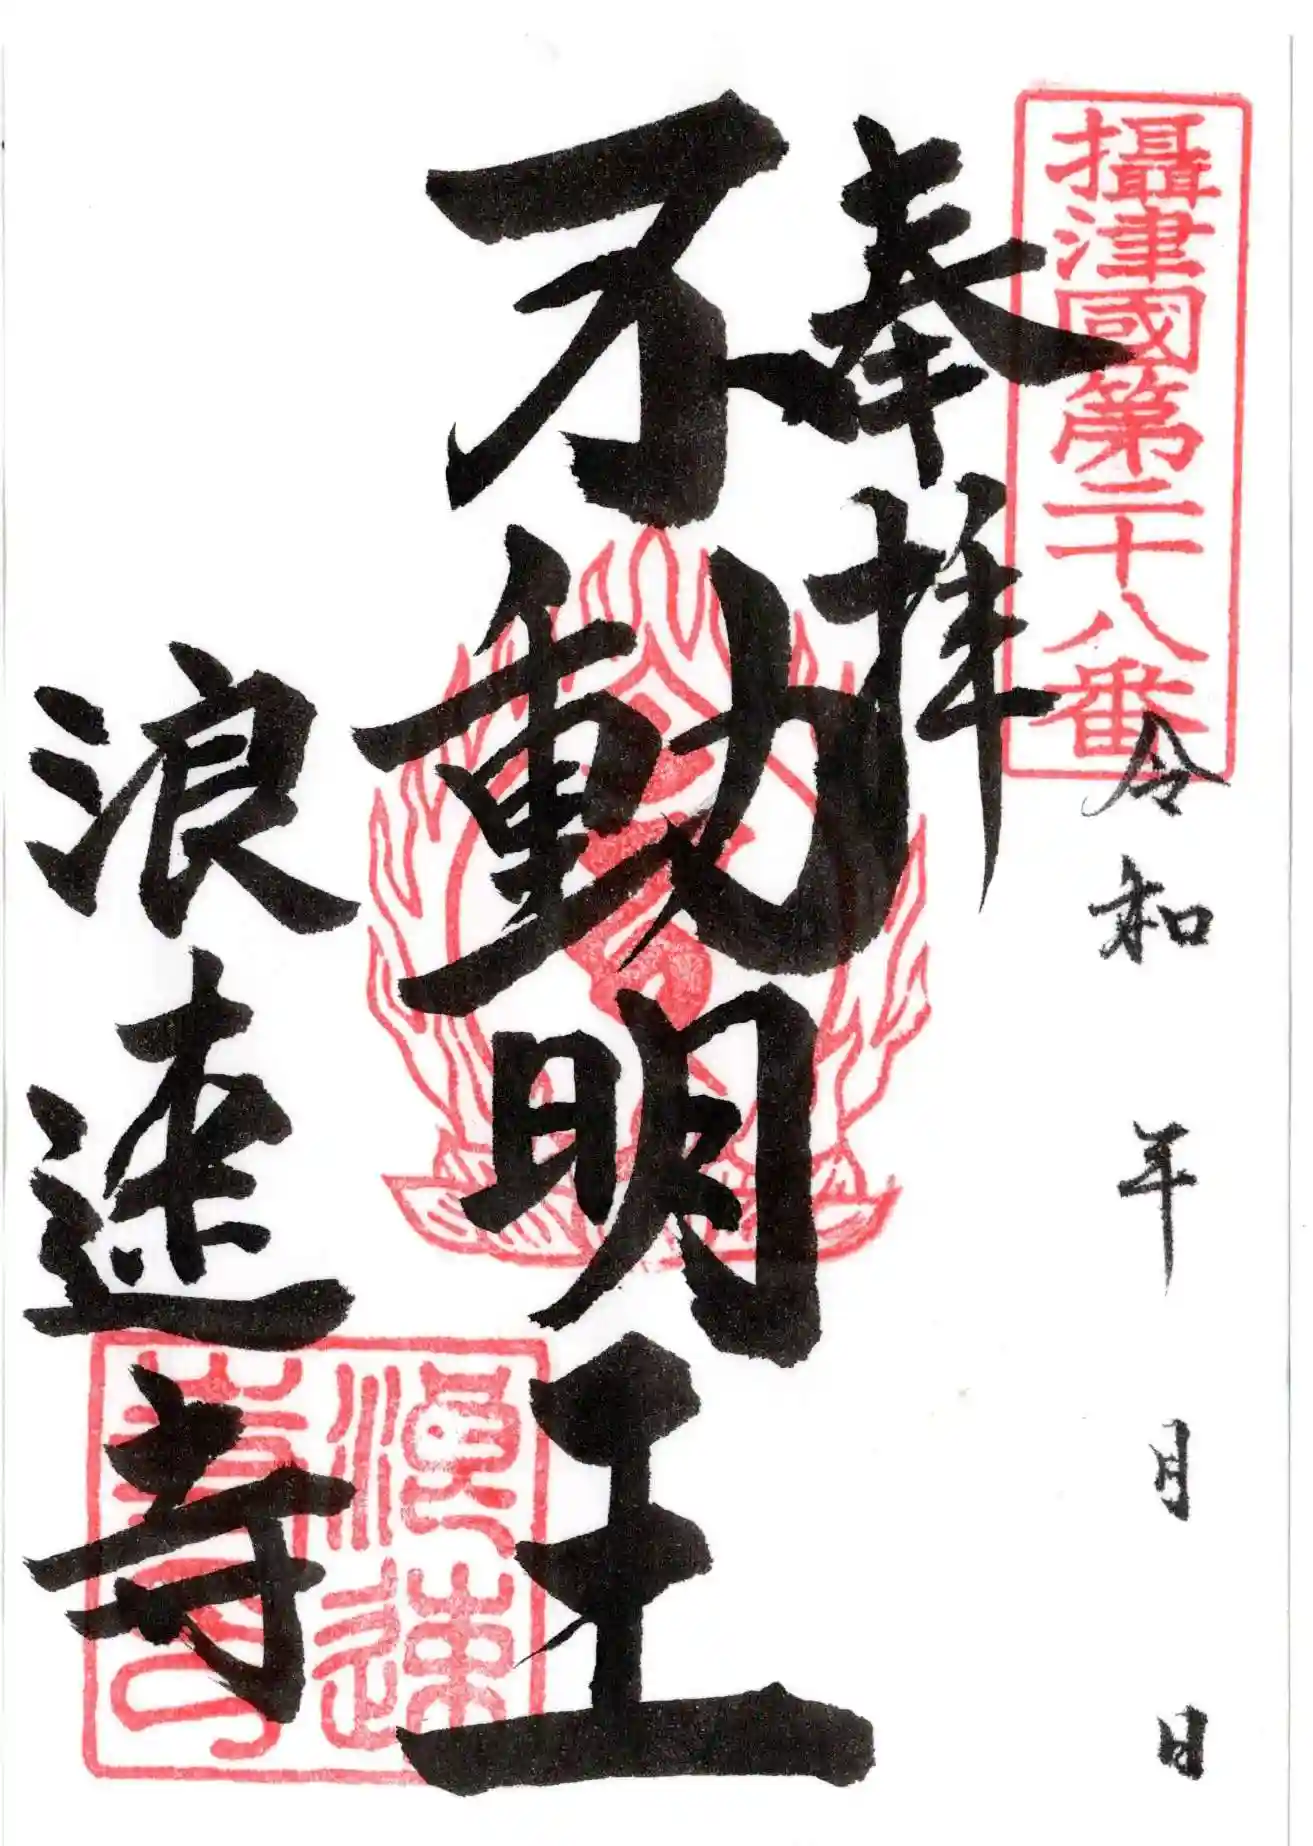 攝津國第二十八番
奉拝
令和 年 月 日
不動明王
浪速寺
浪速